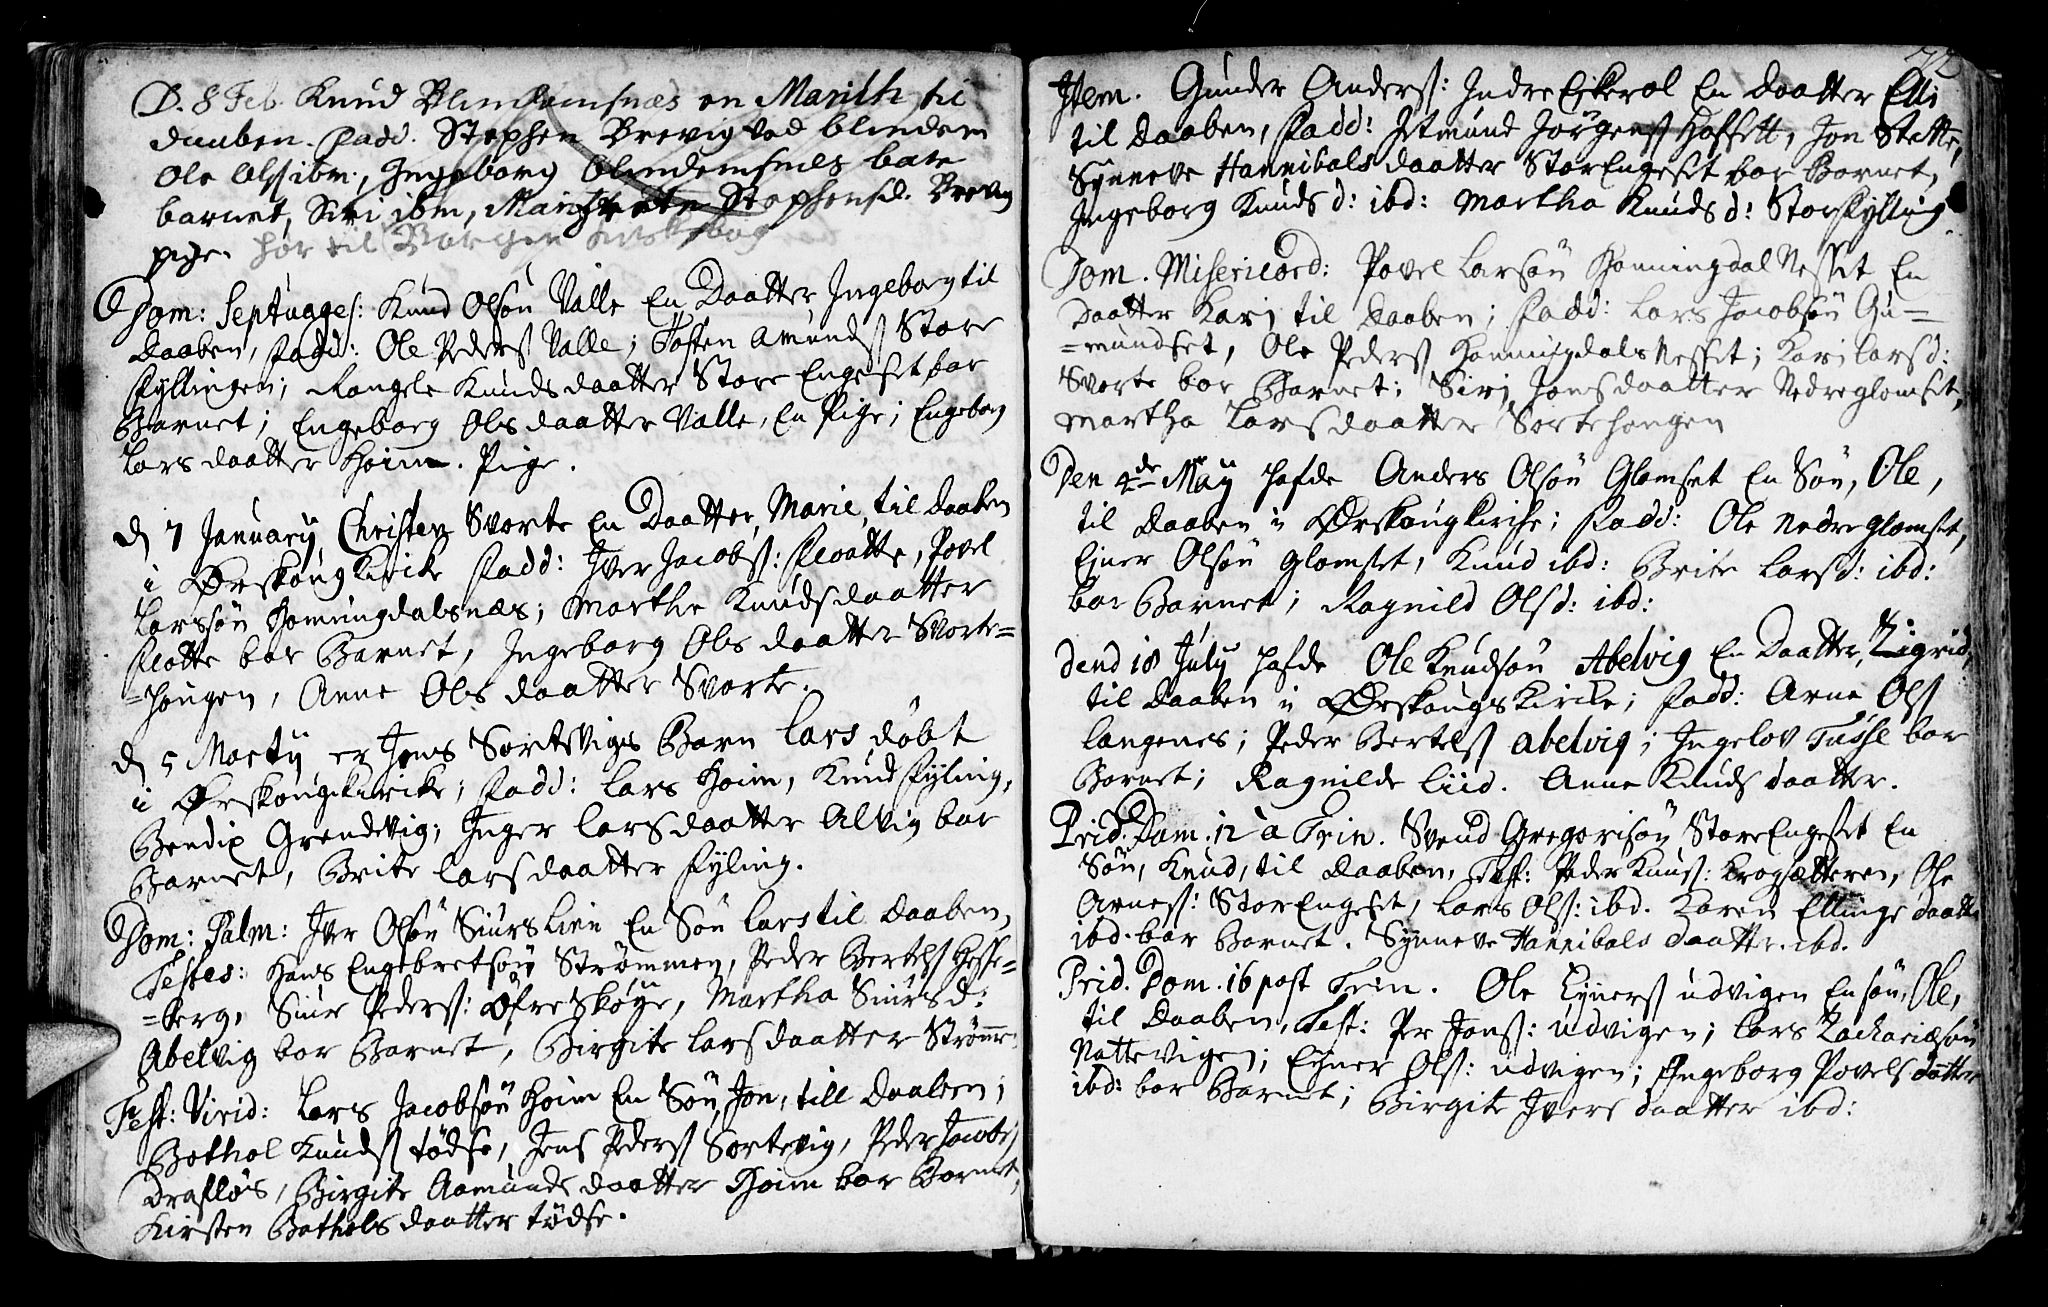 D. 8 Feb. Knud Blindemsnæs en Marith til
daaben. Fadd. Stephen Brevig Lod blindem
Ole Olss ibm., Ingeborg blindemsnæs bare
barnet, Siri ibm, Stephensd. Brevig
pige. hør til Borgen
Dom: Septuages: Knud Olsøn Valle En Daatter Ingeborg til
Daaben, Fadd: Ole Peders Valle; Tosten Amunds Store
Fyllingen; Rangle Knuds daatter Store Engeset bar
Barnet; Engeborg Ols daatter Valle, En Pige; Engeborg
Lars daatter Hoim. Pige.
d 7 January Christen Svorte En Daatter, Marie, til Daaben
i Ørskoug Kirke Fadd: Iver Jacobs: Floatte, Povel
Larssøn Honningdalsnæs; Marthe Knuds daatter
Flotte bar Barnet, Ingeborg Ols daatter Svorte=
=hougen, Anne Ols daatter Svorte.
d 5 Marty er Jens Sortevigs Barn Lars døbt
i Ørskoug Kirke; Fadd: Lars Hoim, Knud Fyling,
Bendix Grendvig; Inger Lars daatter Alvig bar
Barnet, Brite Lars daatter Fyling.
Dom: Palm: Iver Olsøn Siurs Lien En Søn Lars til Daaben,
Testes: Hans Engebretsøn Strømmen, Peder Bertels Hesse=
=berg, Siur Peders: Øfre Skøye, Martha Siursd:
Abelvig bar Barnet, Birgite Lars daatter Strømme
Fest: Virid: Lars Jacobsøn Hoim En Søn Jon, till Daaben;
Bothol Knuds tødse, Jens Peders Sortevig, Peder Jacobs
Drafløs, Birgite Aamunds daatter Hoim bar Barnet,
Kirsten Bothols daatter tødse.
72
Item. Gunder Anders: Indre Eskerol En daatter Elli
til Daaben, Fadd: Istmund Jørgens Hoffsett, Jon Stette,
Synneve Hannibals daatter Stor Engeset bar Barnet,
Ingeborg Knuds d: ibd: Martha Knuds d: Stor Fylling
Dom. Misericord: Povel Larsøn Honningdal Nesset En
Daatter Kari til Daaben; Fadd: Lars Jacobsøn Gu=
=mundset, Ole Peders Honningdals Nesset; Kari Larsd:
Svorte bar Barnet; Siri Jons daatter Nedre glomset,
Martha Lars daatter Sortehongen
Den 4de May hafde Anders Olsøn Glomset En Søn, Ole,
til Daaben i Ørskoug Kirke; Fadd: Ole Nedre glomset,
Ejner Olsøn Glomset, Knud ibd: Brite Larsd: ibd:
bar Barnet; Ragnild Olsd: ibd:
Dend 18 July hafde Ole Knudsøn Abelvig En Daatter, Zigrid,
til Daaben i Ørskougs Kirke; Fadd: Arne Ols
Langenes; Peder Bertels abelvig; Ingelov Tusse bar
Barnet; Ragnilde Liid. Anne Knuds daatter.
Prid. Dom. 12 a Trin. Svend Gregorisøn Store Engeset En
Søn, Knud, til Daaben, Test: Peder Knuds: Krogsætteren, Ole
Arness: Stor Engeset, Lars Ols: ibd. Karen Ellings daatter
ibd. bar Barnet. Synneve Hannibals daatter. ibd.
Prid. Dom. 16 post Trin. Ole Eyners udvigen En søn, Ole,
til Daaben, Test: Per Jons: udvigen; Lars Zachariæsøn
Nattevigen; Eyner Ols: udvigen; Ingeborg Povels datter
ibd: bar Barnet; Birgite Ivers daatter ibd: